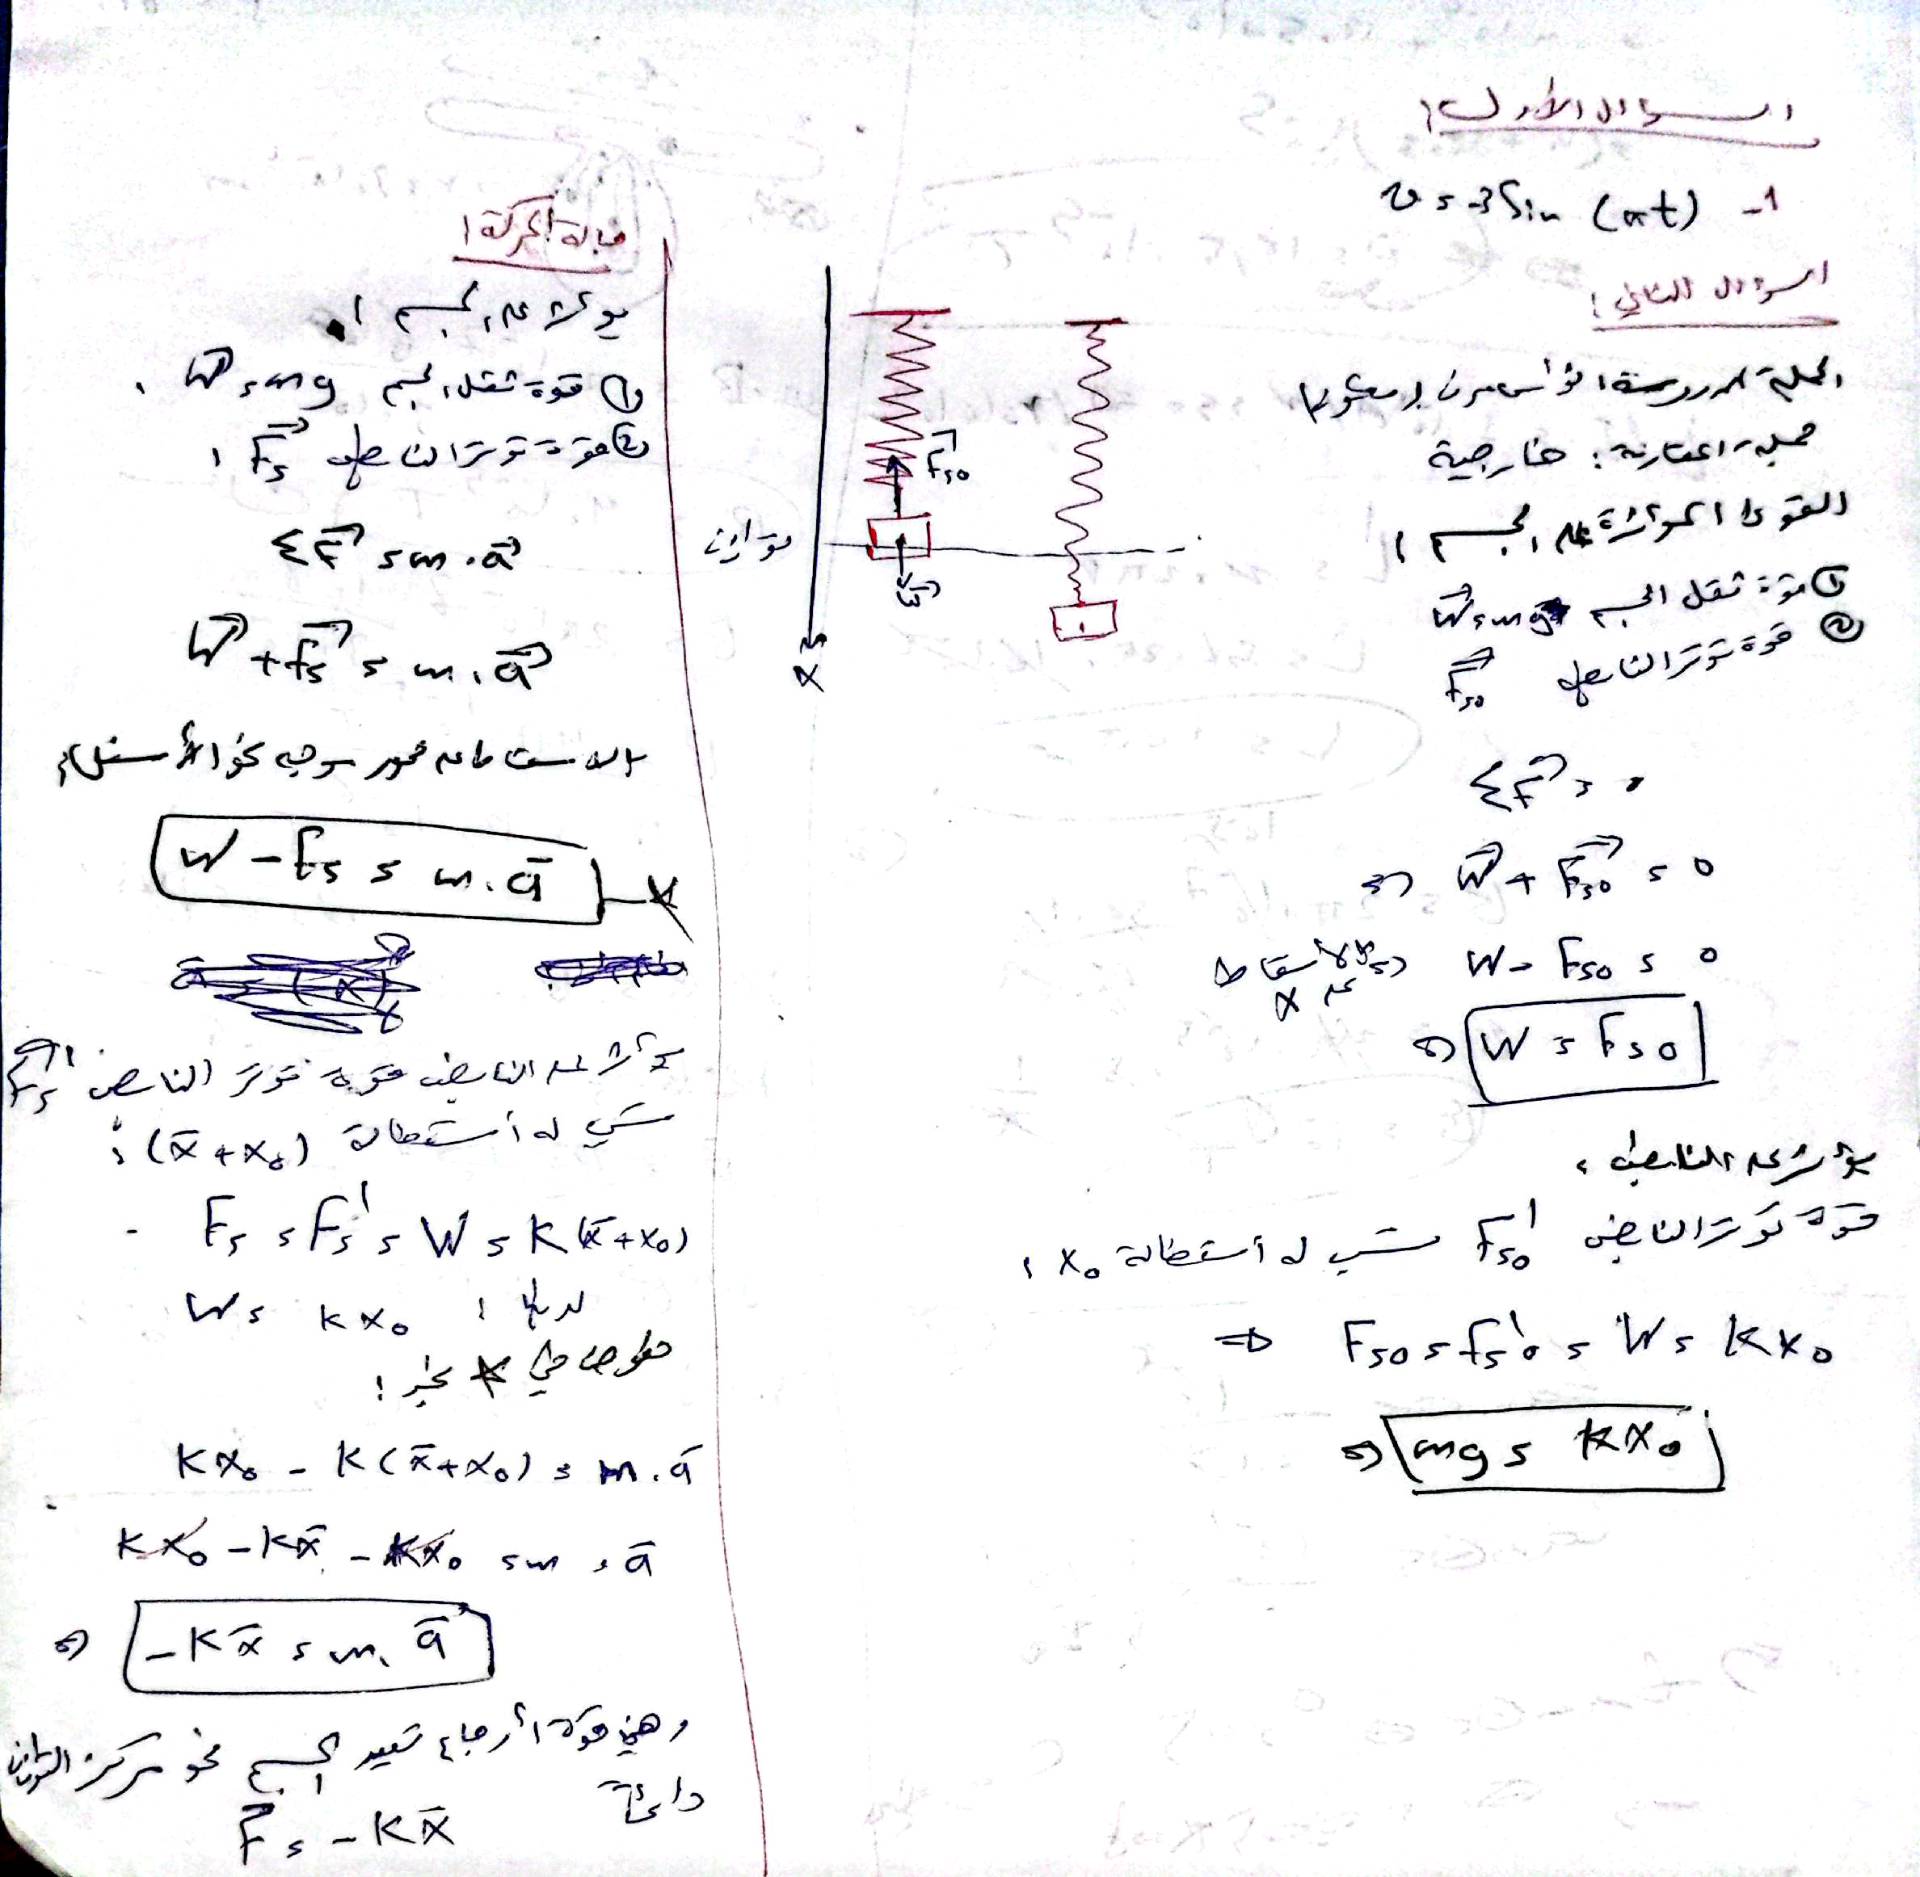 السؤال الأول:
1- v = -3 Sin (πt)
السؤال الثاني:
الجملة المدروسة: نواس مرن
جملة المقارنة: خارجية
القوى المؤثرة على الجسم:
① قوة ثقل الجسم W = mg
② قوة توتر النابض Fs0
ΣF = 0
⇒ W + Fs0 = 0
بالاسقاط على x W - Fs0 = 0
⇒ W = Fs0
يؤثر على النابض:
قوة توتر النابض F's0 تسبب له استطالة x0:
⇒ Fs0 = F's0 = W = K x0
⇒ mg = K x0
Fs0
توازن
W
x
حالة الحركة:
يؤثر على الجسم:
① قوة ثقل الجسم W = mg.
② قوة توتر النابض Fs:
ΣF = m.a
W + Fs = m.a
بالاسقاط على محور موجه نحو الأسفل:
W - Fs = m.a *
يؤثر على النابض قوة توتر النابض F's
تسبب له استطالة (x + x0):
Fs = F's = W = K(x + x0)
لدينا: W = K x0
نعوض في * نجد:
K x0 - K(x + x0) = m.a
K x0 - K x - K x0 = m.a
⇒ -K x = m.a
وهي قوة ارجاع تعيد الجسم نحو مركز التوازن
دائماً
F = -K x